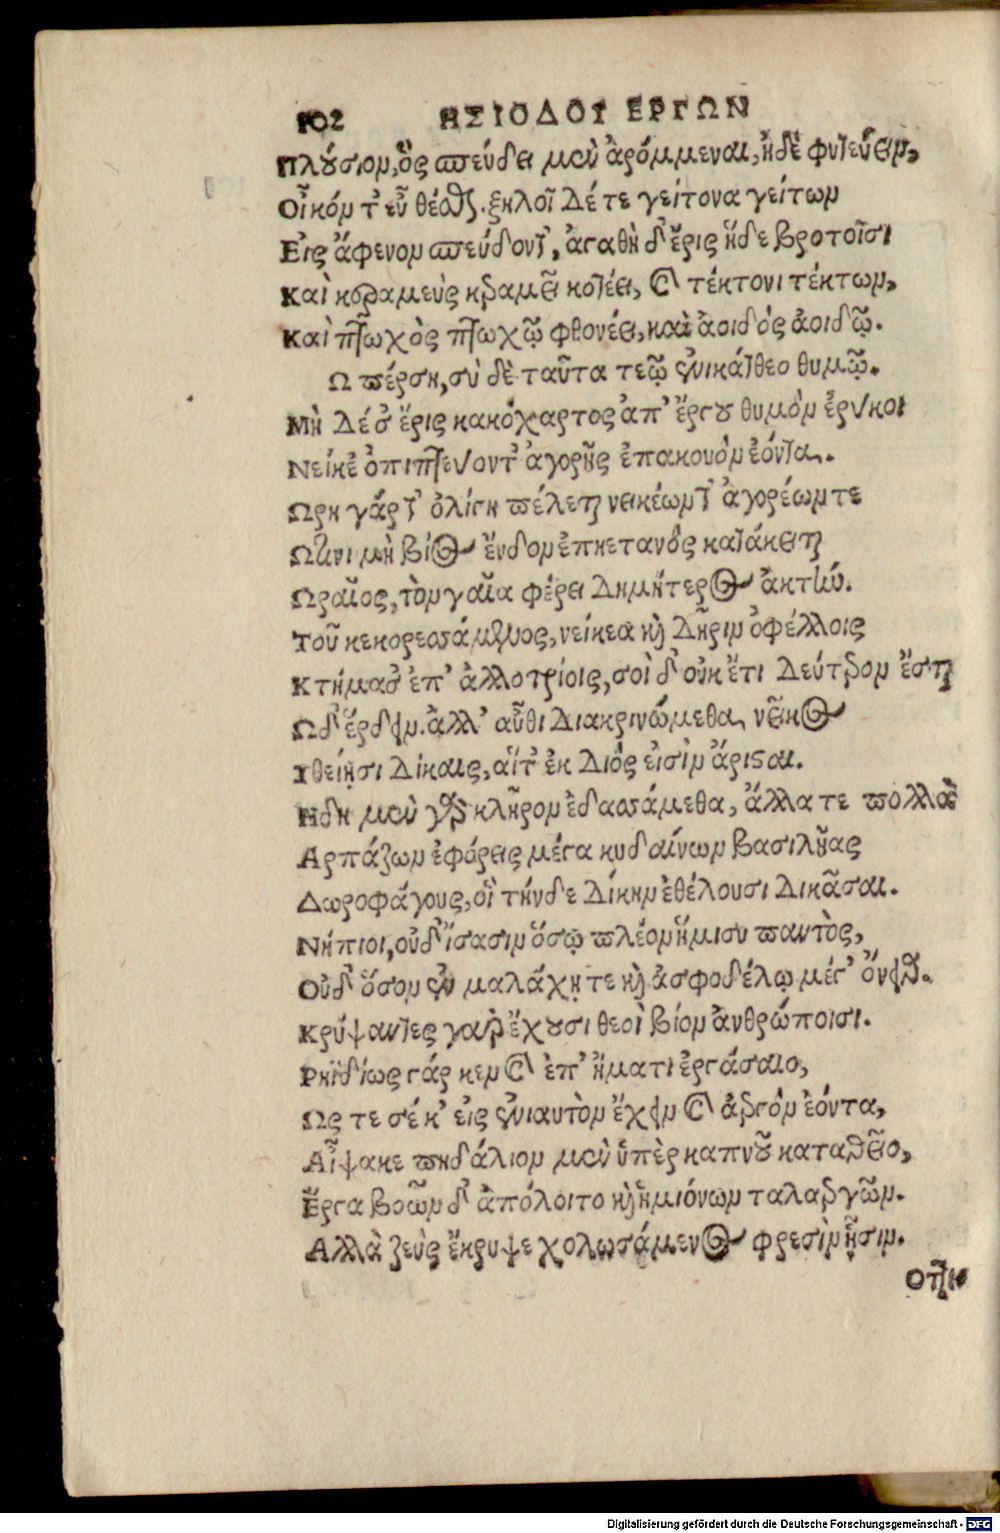 102 ΗΣΙΟΔΟΥ ΕΡΓΩΝ
Πλούσιον, ὃς σπεύδει μὲν ἀρόμμεναι, ἠδὲ φυτεύειν,
Οἶκόν τ' εὖ θέσθαι. ζηλοῖ δέ τε γείτονα γείτων
Εἰς ἄφενον σπεύδοντ', ἀγαθὴ δ' ἔρις ἥδε βροτοῖσι
Καὶ κεραμεὺς κεραμεῖ κοτέει, καὶ τέκτονι τέκτων,
Καὶ πτωχὸς πτωχῷ φθονέει, καὶ ἀοιδός ἀοιδῷ.
Ω πέρση, σὺ δὲ ταῦτα τεῷ ἐνικάτθεο θυμῷ.
Μὴ δέ σ' ἔρις κακόχαρτος ἀπ' ἔργου θυμὸν ἐρύκοι
Νείκε' ὀπιπτεύοντ' ἀγορῆς ἐπακουὸν ἐόντα.
Ωρη γάρ τ' ὀλίγη πέλεται νεικέων τ' ἀγορέων τε
Ωτινι μὴ βίος ἔνδον ἐπηετανός κατάκειται
Ωραῖος, τὸν γαῖα φέρει Δημήτερος ἀκτήν.
Τοῦ κεκορεσσάμενος, νείκεα καὶ δῆριν ὀφέλλοις
Κτήμασ' ἐπ' ἀλλοτρίοις, σοὶ δ' οὐκ ἔτι δεύτερον ἔσται
Ωδ' ἔρδειν. ἀλλ' αὖθι διακρινώμεθα νεῖκος
Ιθείῃσι δίκαις, αἵτ' ἐκ Διός εἰσὶν ἄρισται.
Ηδη μὲν γὰρ κλῆρον ἐδασσάμεθα, ἄλλα τε πολλὰ
Αρπάζων ἐφόρεις μέγα κυδαίνων βασιλῆας
Δωροφάγους, οἳ τήνδε δίκην ἐθέλουσι δικᾶσαι.
Νήπιοι, οὐδ' ἴσασιν ὅσῳ πλέον ἥμισυ παντὸς,
Οὐδ' ὅσον ἐν μαλάχῃ τε καὶ ἀσφοδέλῳ μέγ' ὄνειαρ.
Κρύψαντες γὰρ ἔχουσι θεοὶ βίον ἀνθρώποισι.
Ρηϊδίως γάρ κεν καὶ ἐπ' ἤματι ἐργάσαιο,
Ως τε σέ κ' εἰς ἐνιαυτὸν ἔχειν καὶ ἀεργόν ἐόντα,
Αἶψα κε πηδάλιον μὲν ὑπὲρ καπνοῦ καταθεῖο,
Ἔργα βοῶν δ' ἀπόλοιτο καὶ ἡμιόνων ταλαεργῶν.
Αλλὰ ζεὺς ἔκρυψε χολωσάμενος φρεσὶν ᾗσιν.
Οττι
Digitalisierung gefördert durch die Deutsche Forschungsgemeinschaft - DFG